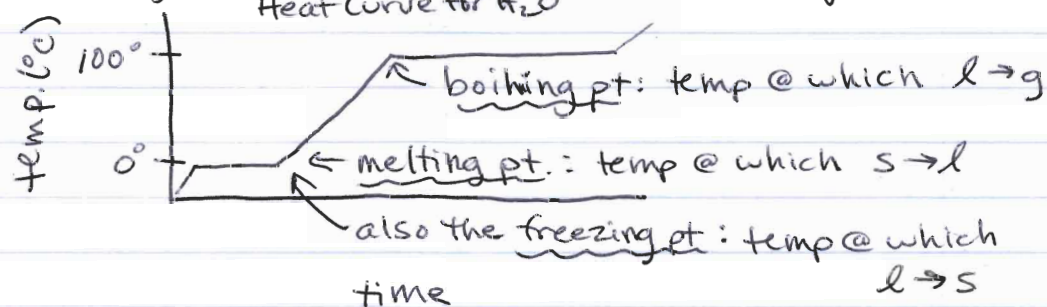 Heat Curve for H₂O
temp. (°C)
100°
boiling pt: temp @ which l → g
0°
← melting pt.: temp @ which s → l
also the freezing pt: temp @ which
l → s
time